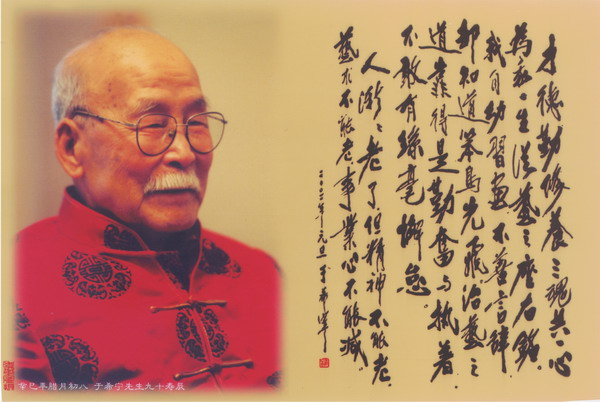 才德勤修養三魂共一心
為余一生從藝之座右銘。
我自幼習畫不善言辞
却知道笨鳥先飛治藝之
道靠得是勤奮与执着.
不敢有絲毫懈怠.
人漸〻老了但精神不能老.
藝术不能老事業心不能减.
二〇〇二年元旦 于希寧
辛巳年腊月初八 于希宁先生九十寿辰